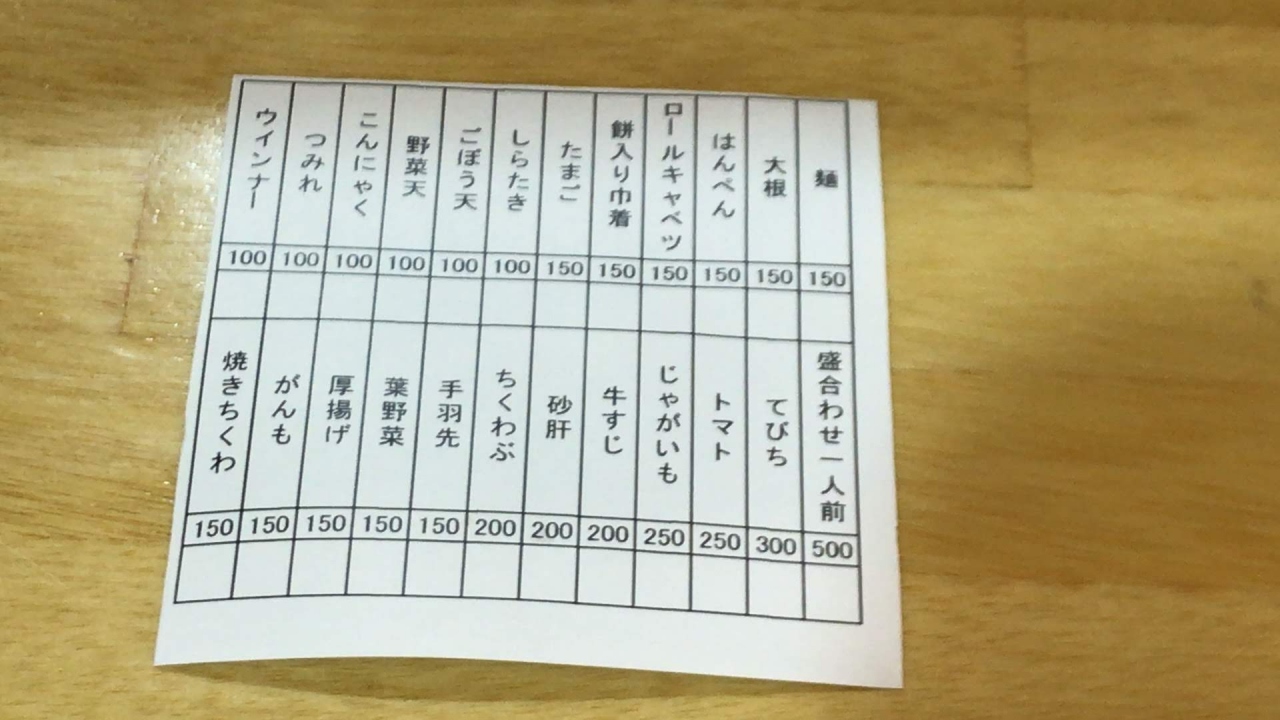 麺
150
大根
150
はんぺん
150
ロールキャベツ
150
餅入り巾着
150
たまご
150
しらたき
100
ごぼう天
100
野菜天
100
こんにゃく
100
つみれ
100
ウインナー
100
盛合わせ一人前
500
てびち
300
トマト
250
じゃがいも
250
牛すじ
200
砂肝
200
ちくわぶ
200
手羽先
150
葉野菜
150
厚揚げ
150
がんも
150
焼きちくわ
150